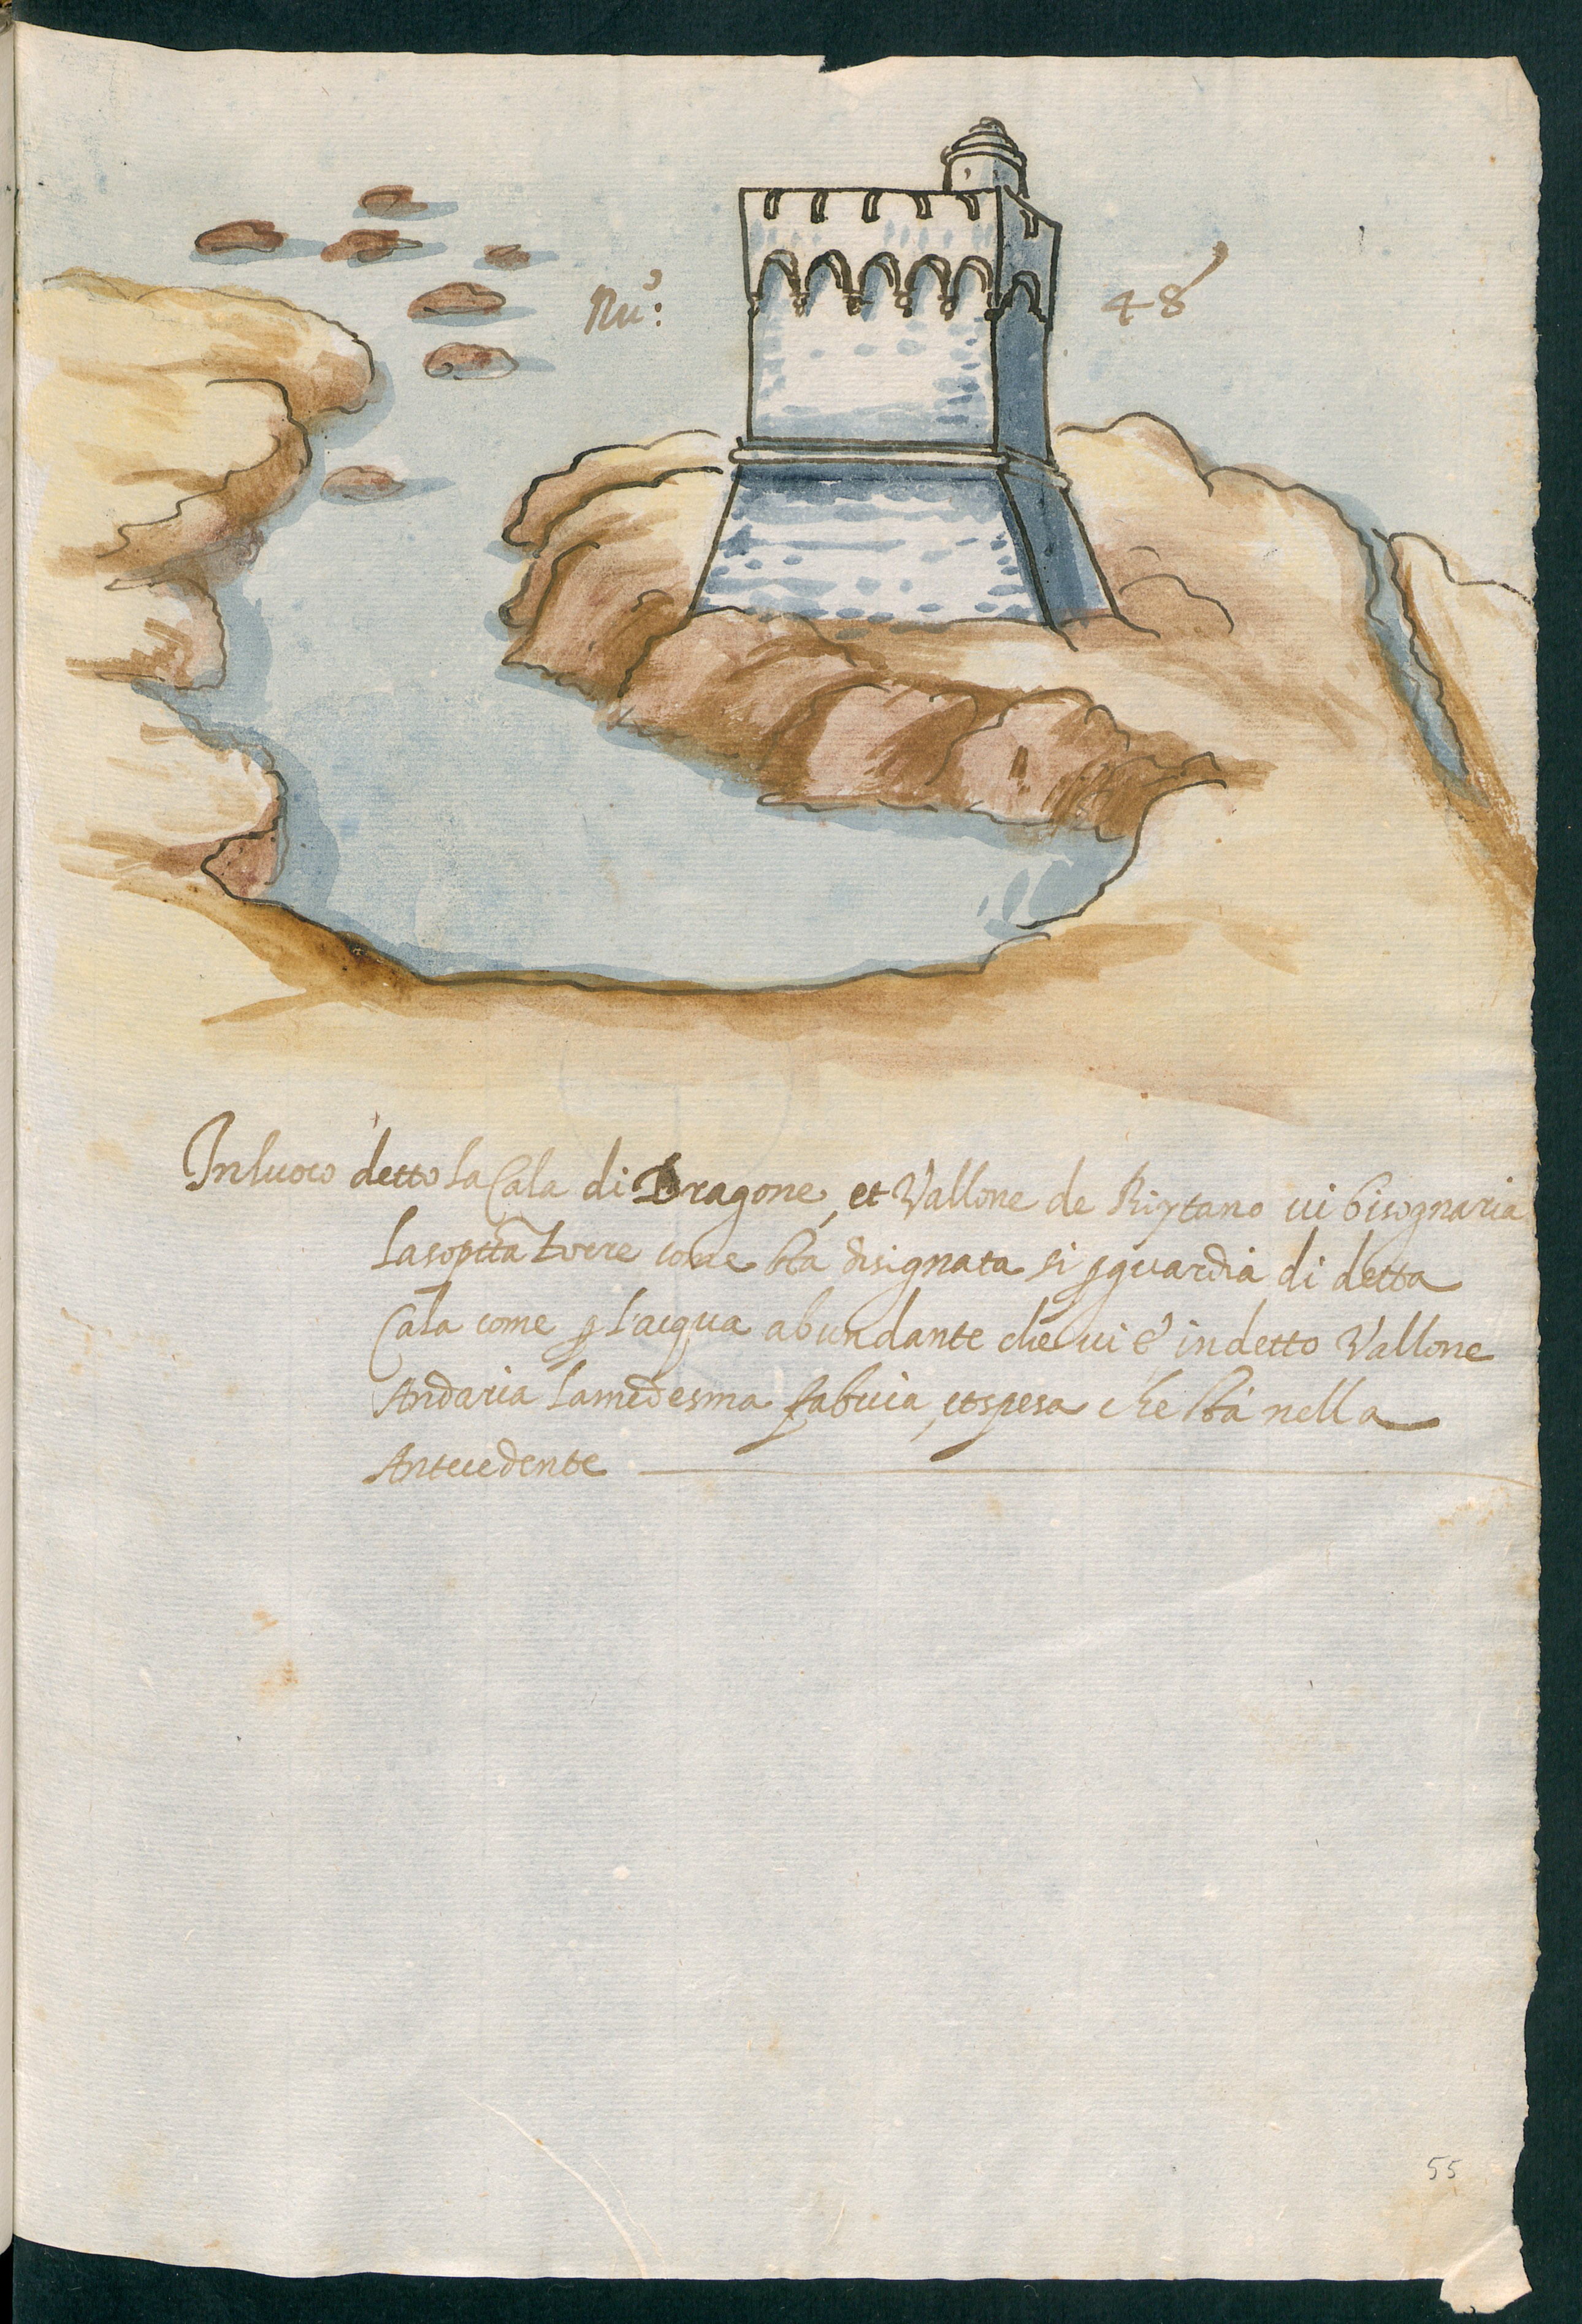 Nu.º: 48
In luoco detto La Cala di Dragone, et Vallone de Riytano vi bisognaria
La sop.tta torre come sta disignata si p guardia di detta
Cala come p L'acqua abundante che vi è in detto Vallone
Andaria La medesma fabrica, et spesa che sta nella
Antecedente
55